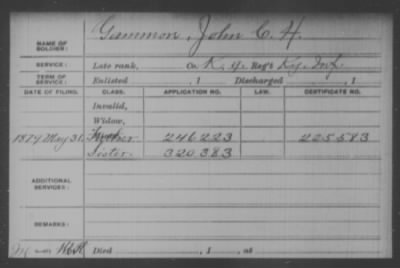 Gammon, John C. H.
NAME OF SOLDIER:
SERVICE: Late rank, Co K, 4, Reg't Ky. Inf.
TERM OF SERVICE: Enlisted , 1 Discharged , 1
DATE OF FILING. CLASS. APPLICATION NO. LAW. CERTIFICATE NO.
Invalid,
Widow,
1879 May 31. Mother 246223 225583
Sister 320383
ADDITIONAL SERVICES:
REMARKS:
Died , 1 , at